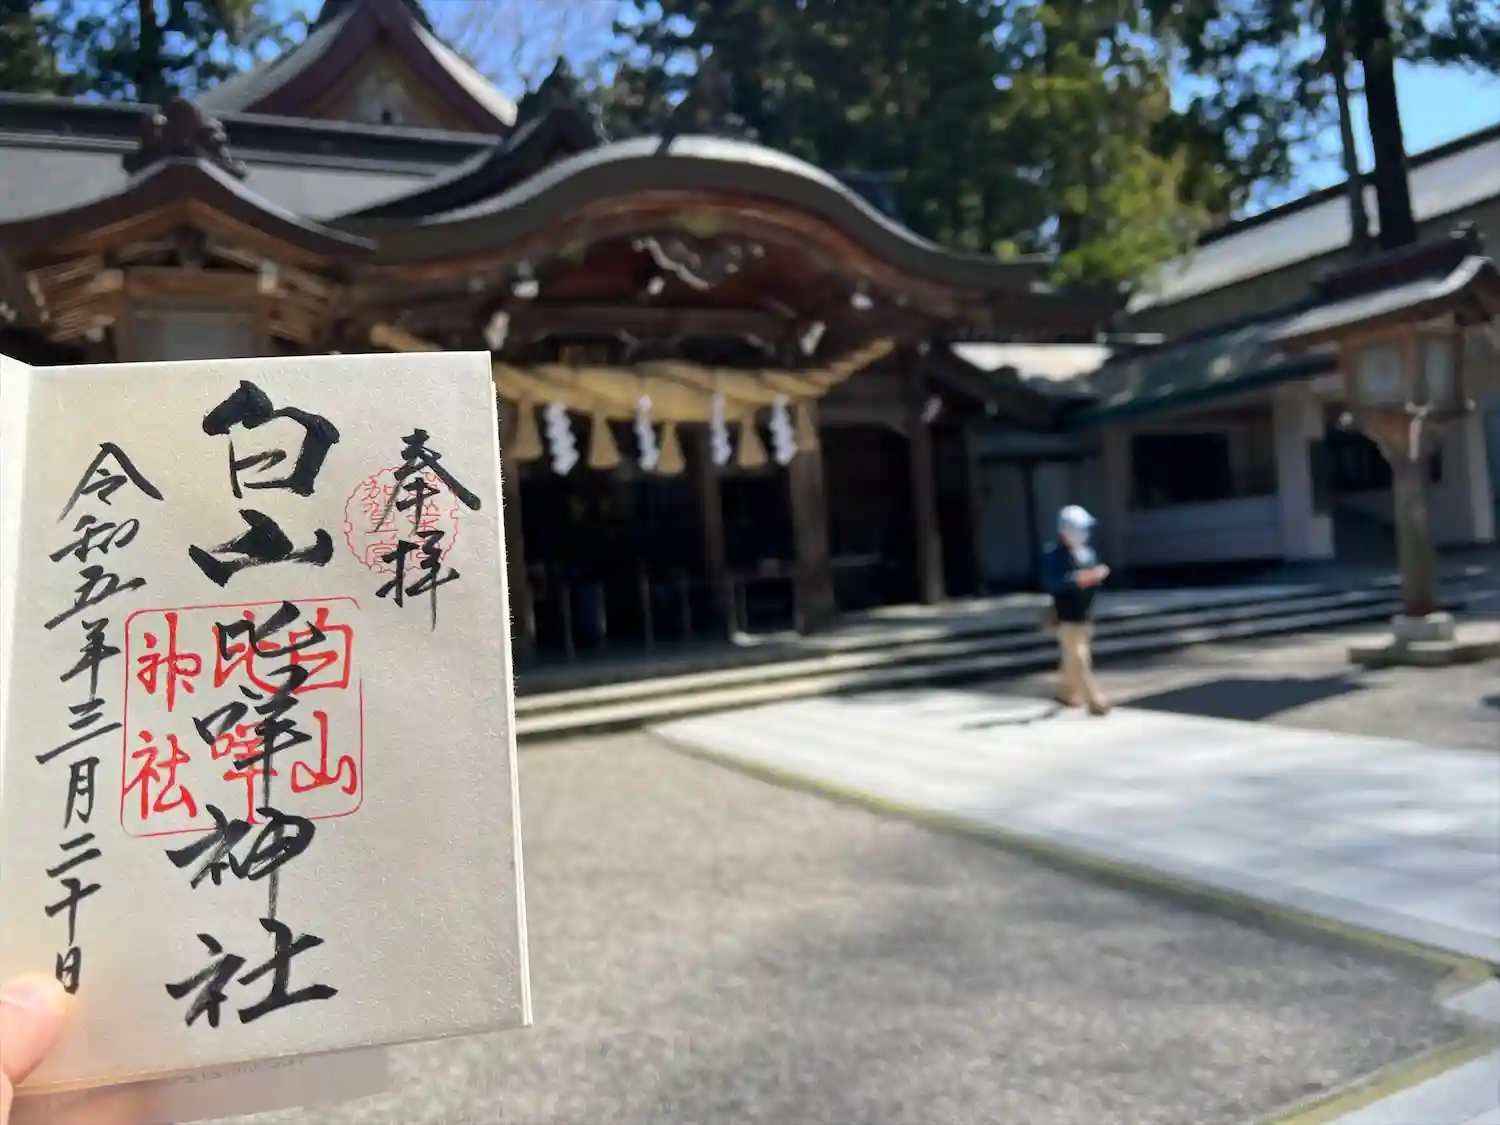 奉拝
白山比咩神社
令和五年三月二十日
加賀一宮
白山
比咩
神社